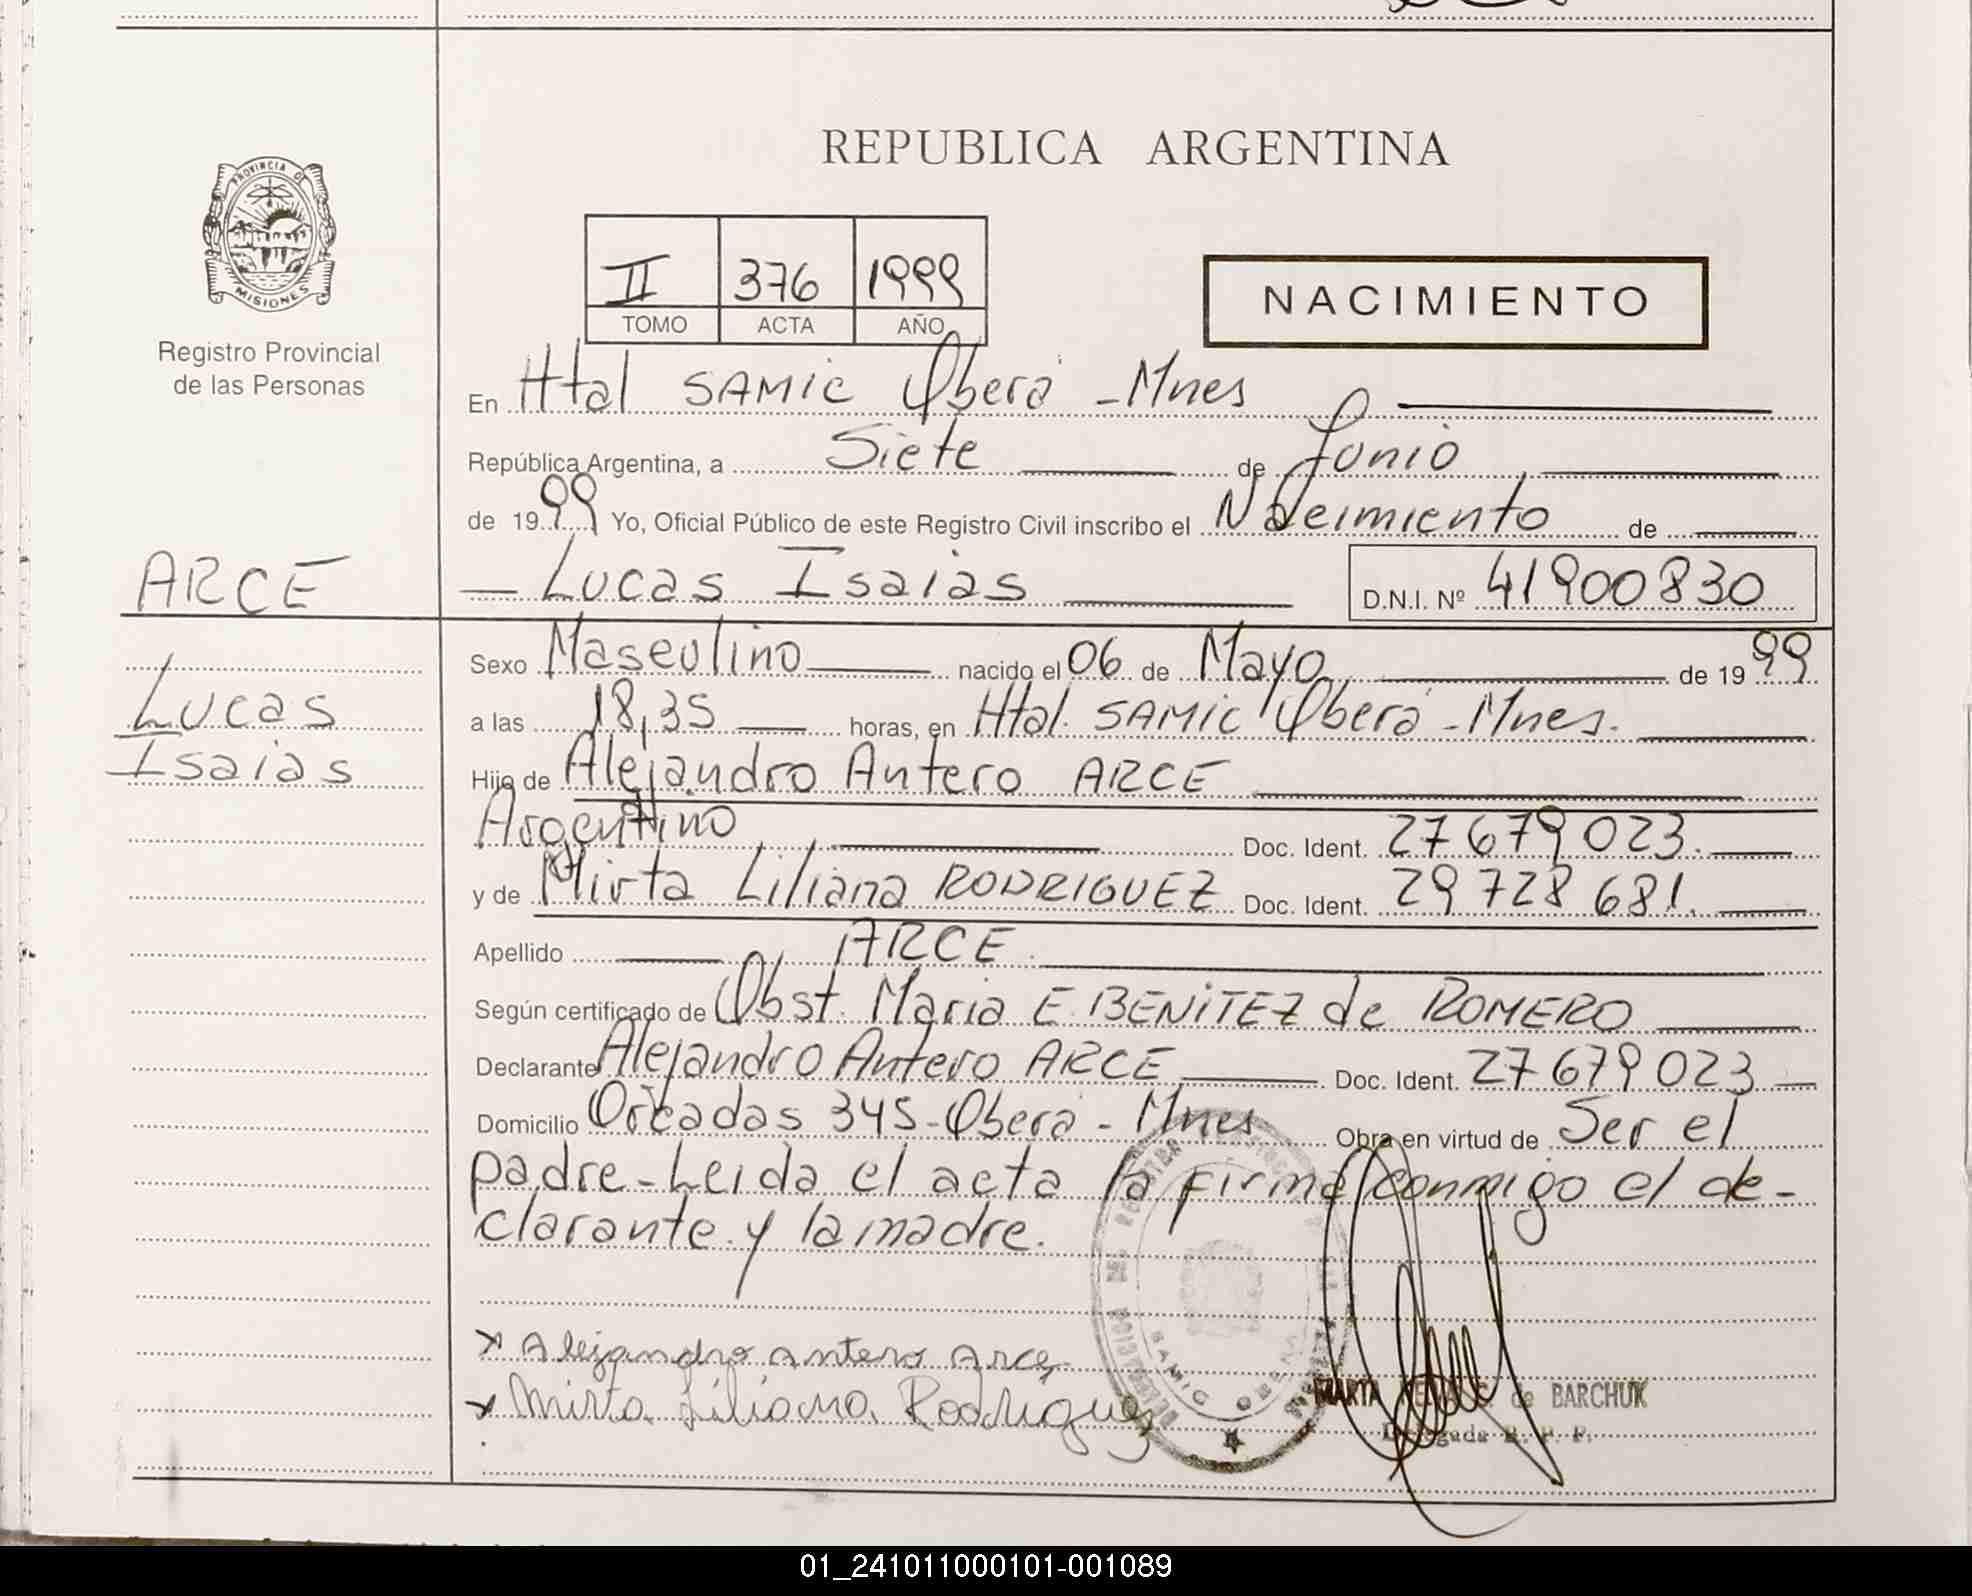 REPUBLICA ARGENTINA
PROVINCIA DE
MISIONES
Registro Provincial
de las Personas
II 376 1999
TOMO ACTA AÑO
NACIMIENTO
En Htal SAMIC Oberá - Mnes
República Argentina, a Siete de Junio
de 1999 Yo, Oficial Público de este Registro Civil inscribo el Nacimiento de
ARCE
Lucas Isaias D.N.I. Nº 41900830
Lucas
Isaias
Sexo Masculino nacido el 06 de Mayo de 1999
a las 18,35 horas, en Htal. SAMIC Oberá - Mnes.
Hijo de Alejandro Antero ARCE
Argentino Doc. Ident. 27 679 023.
y de Mirta Liliana RODRIGUEZ Doc. Ident. 29 728 681.
Apellido ARCE.
Según certificado de Obst. Maria E. BENITEZ de ROMERO
Declarante Alejandro Antero ARCE Doc. Ident. 27 679 023
Domicilio Orcadas 345 - Oberá - Mnes Obra en virtud de Ser el
padre - Leida el acta la firma conmigo el de-
clarante y la madre.
x Alejandro antero Arce
x Mirta Liliana Rodriguez
DELEGACION DEL REGISTRO
SAMIC OBERA
MARTA de BARCHUK
Delegada R. P. P.
01_241011000101-001089